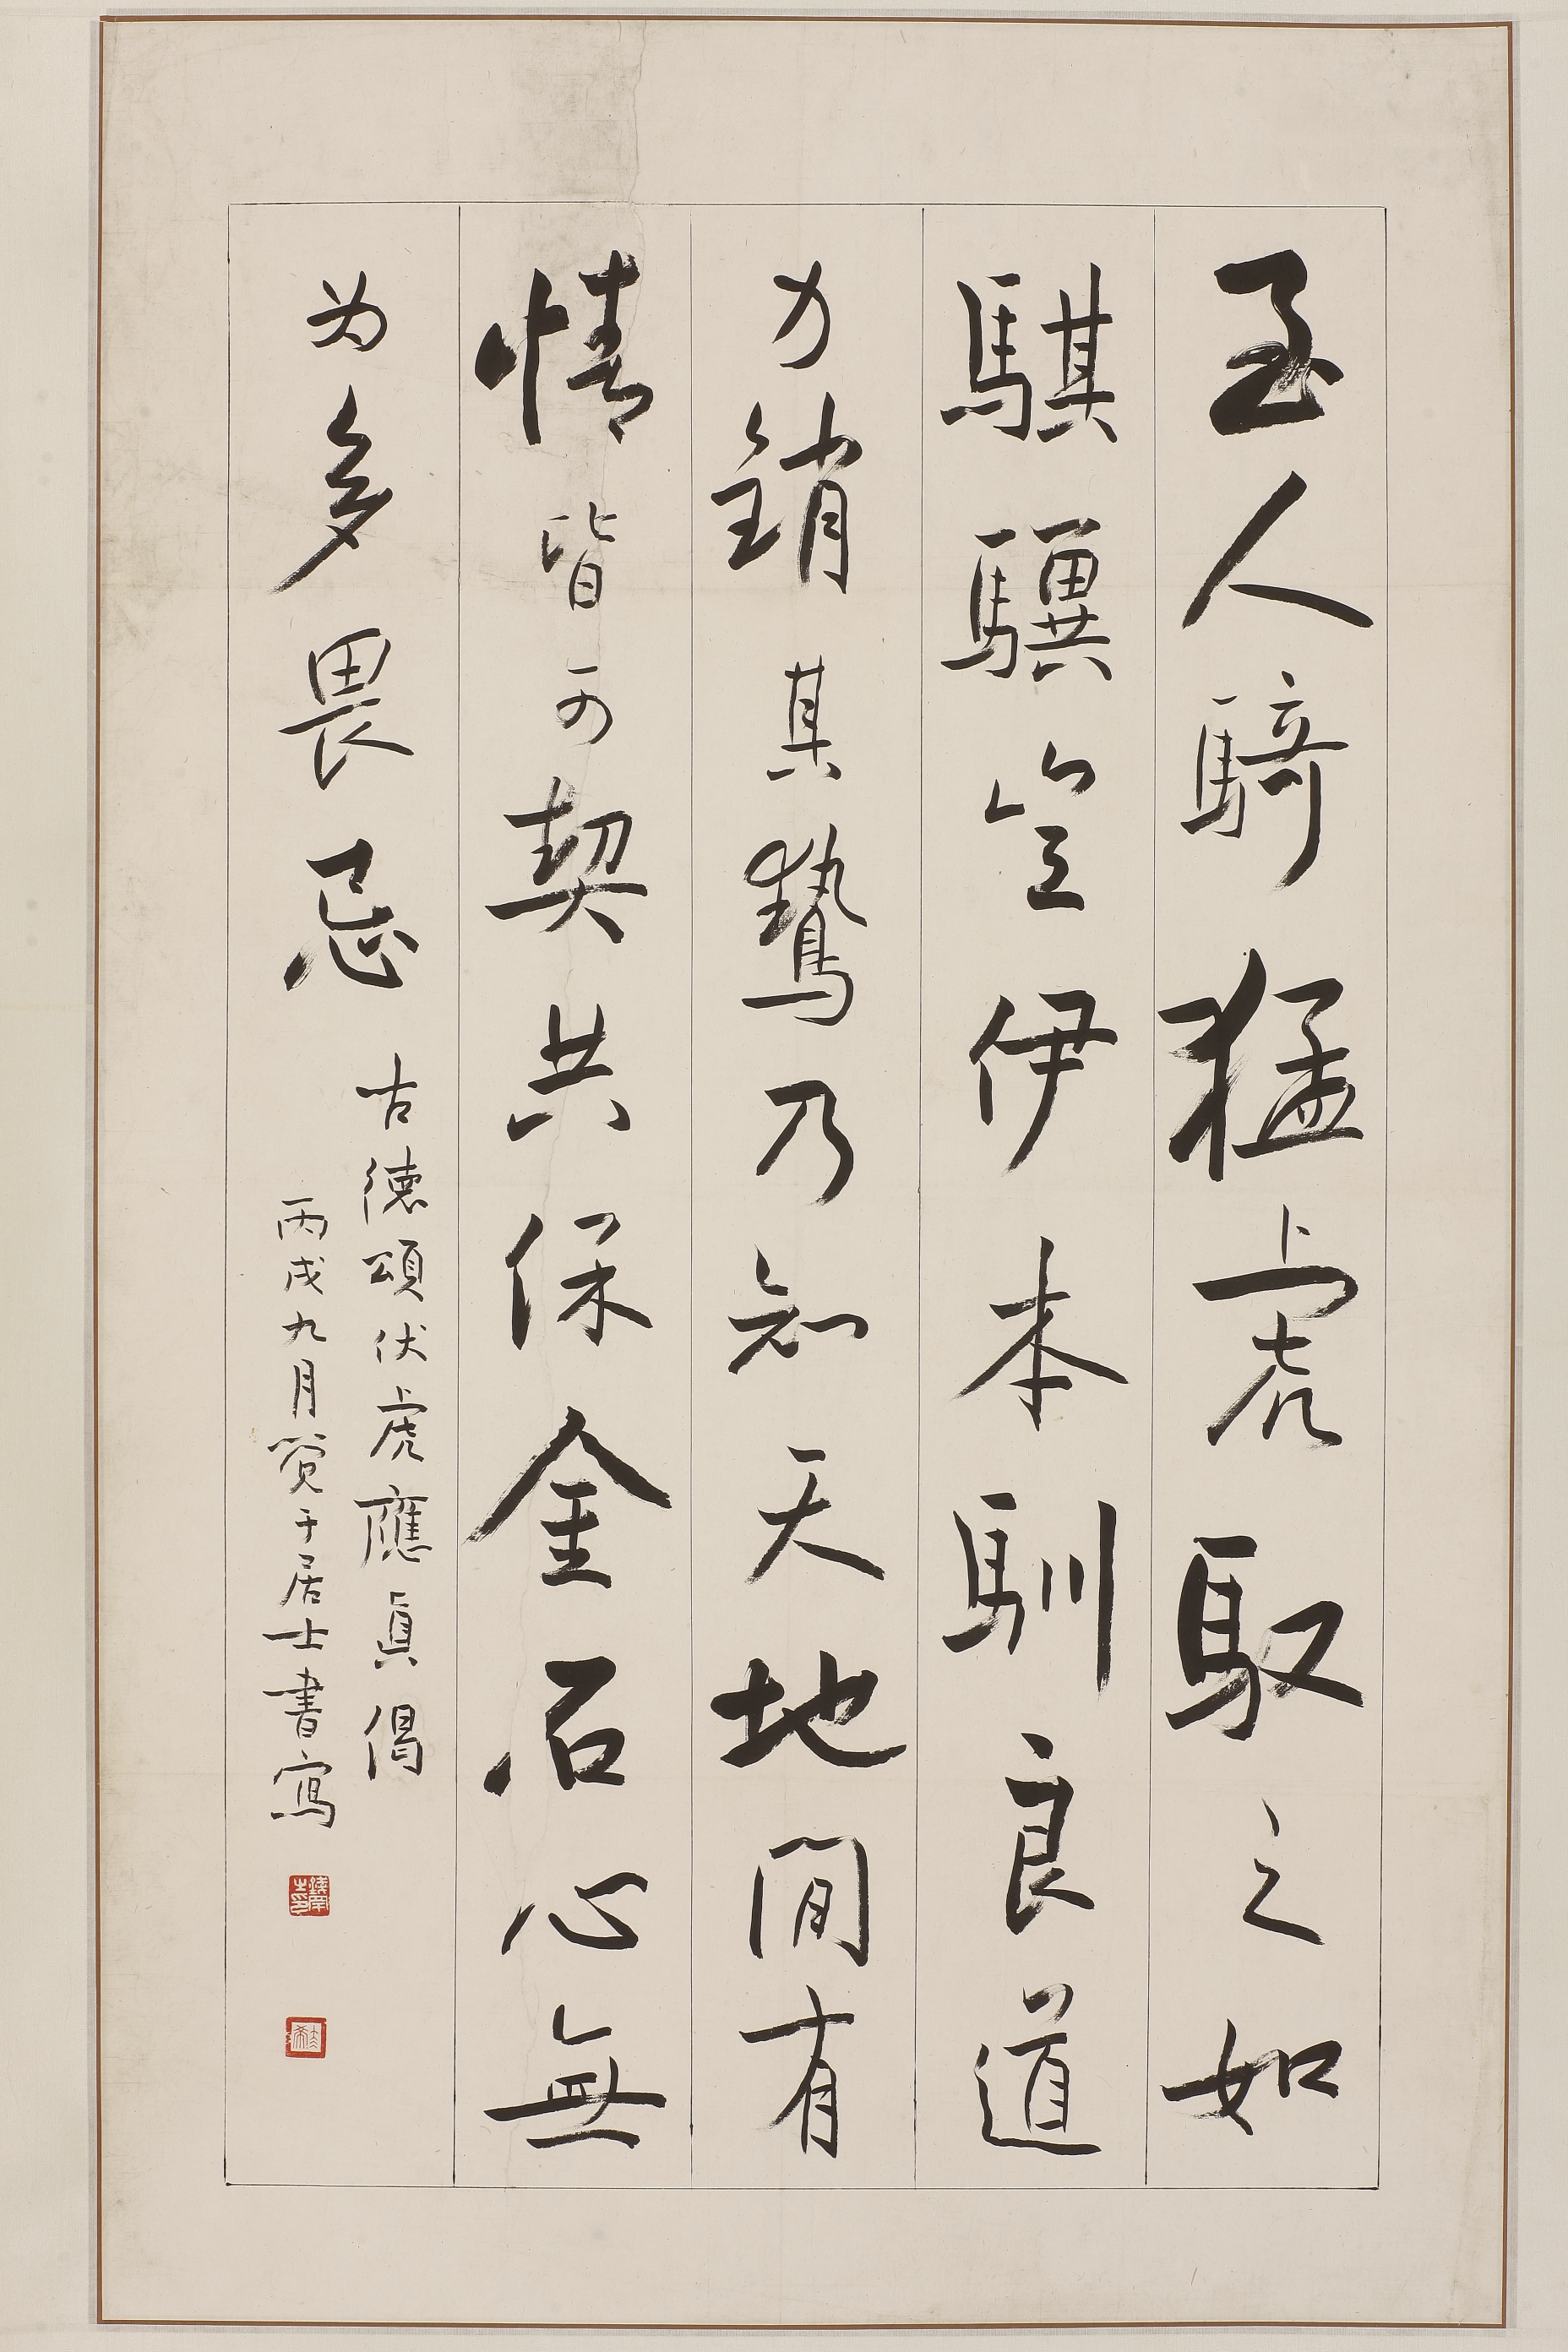 至人騎猛虎馭之如
騏驥豈伊本馴良道
力銷其鷙乃知天地閒有
情皆可契共保金石心無
为多畏忌
古德頌伏虎應眞偈
丙戌九月居士書寫